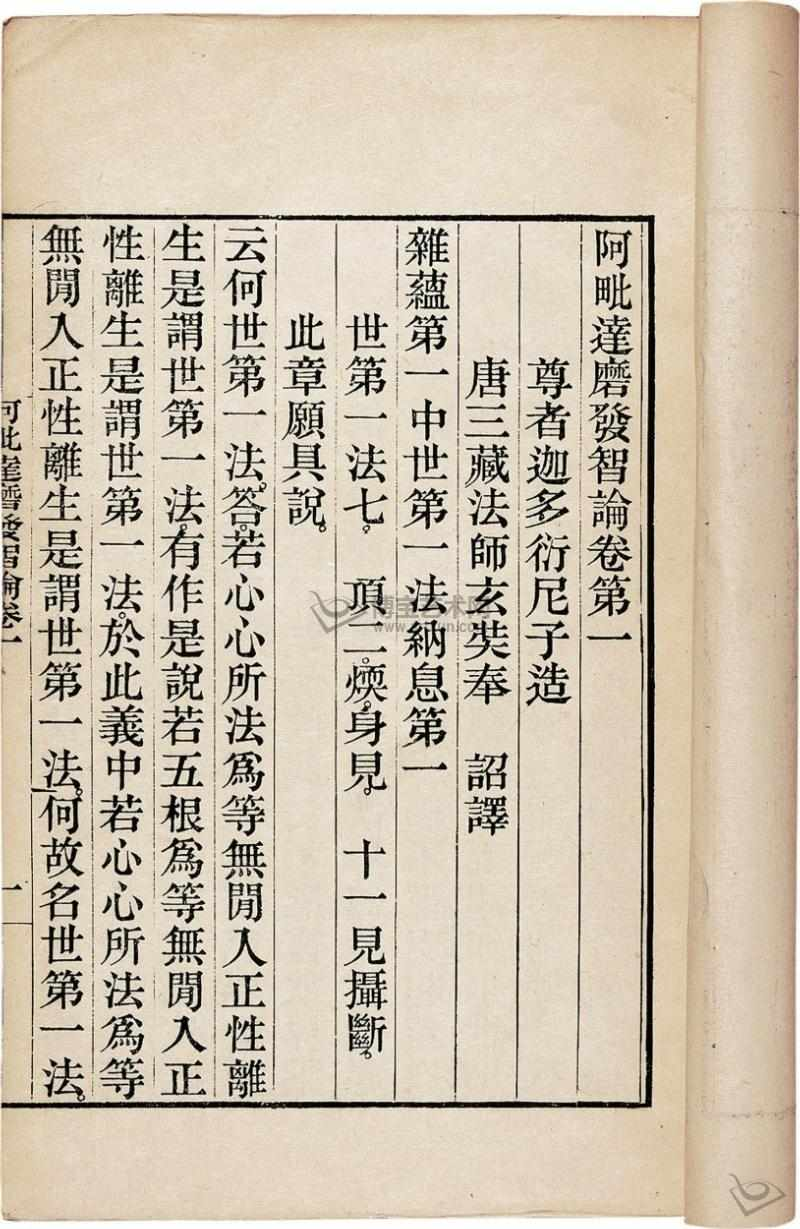 阿毗達磨發智論卷第一
尊者迦多衍尼子造
唐三藏法師玄奘奉　詔譯
雜蘊第一中世第一法納息第一
世第一法七。　頂二。煗。身見。　十一見攝斷。
此章願具說。
云何世第一法。答。若心心所法爲等無閒入正性離
生是謂世第一法。有作是說若五根爲等無閒入正
性離生是謂世第一法。於此義中若心心所法爲等
無閒入正性離生是謂世第一法。何故名世第一法。
阿毗達磨發智論卷一
一
博宝艺术网